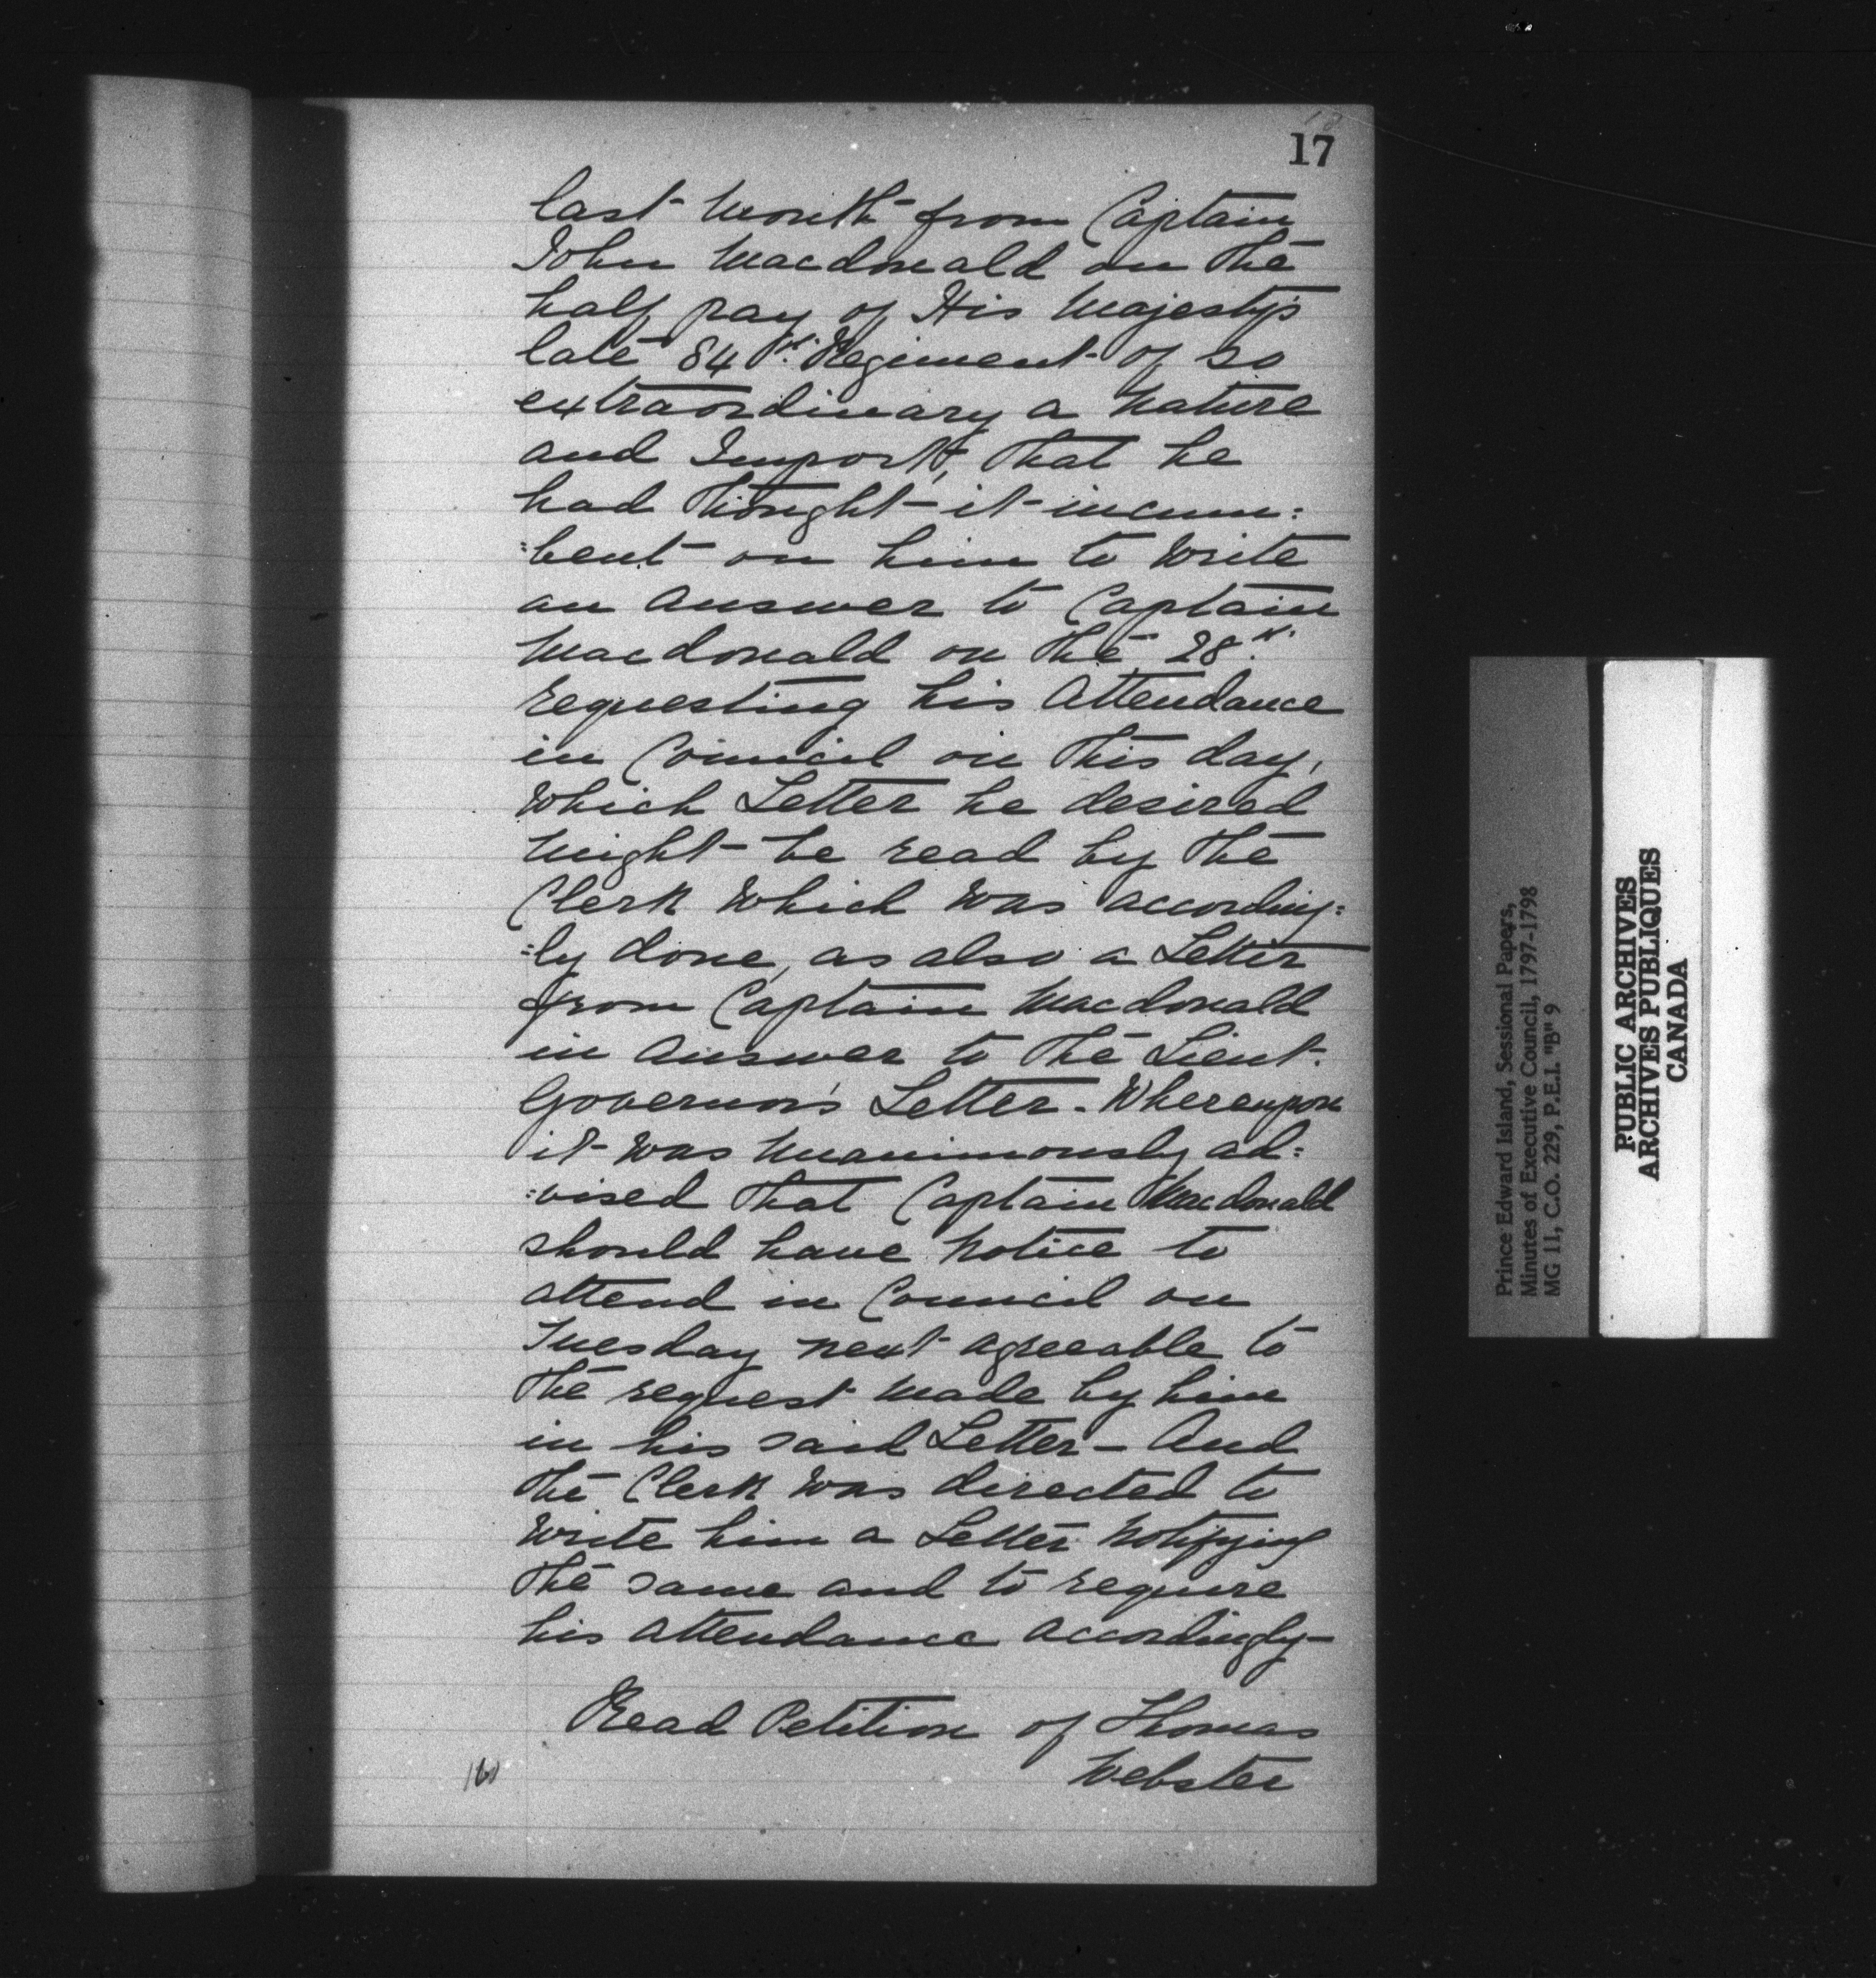 17
last Month from Captain
John Macdonald on the
half pay of His Majesty's
late 84th Regiment of so
extraordinary a Nature
and Import, that he
had thought it incum:
:bent on him to Write
an Answer to Captain
Macdonald on the 28th
requesting his Attendance
in Council on this day,
Which Letter he desired
might be read by the
Clerk Which Was according:
:ly done, as also a Letter
from Captain Macdonald
in Answer to the Lieut.
Governor's Letter. Whereupon
it Was Unanimously ad:
:vised that Captain Macdonald
should have Notice to
attend in Council on
Tuesday next agreeable to
the request Made by him
in his said Letter - And
the Clerk Was directed to
Write him a Letter Notifying
the same and to require
his Attendance Accordingly-
Read Petition of Thomas
Webster
Prince Edward Island, Sessional Papers,
Minutes of Executive Council, 1797-1798
MG 11, C.O. 229, P.E.I. "B" 9
PUBLIC ARCHIVES
ARCHIVES PUBLIQUES
CANADA